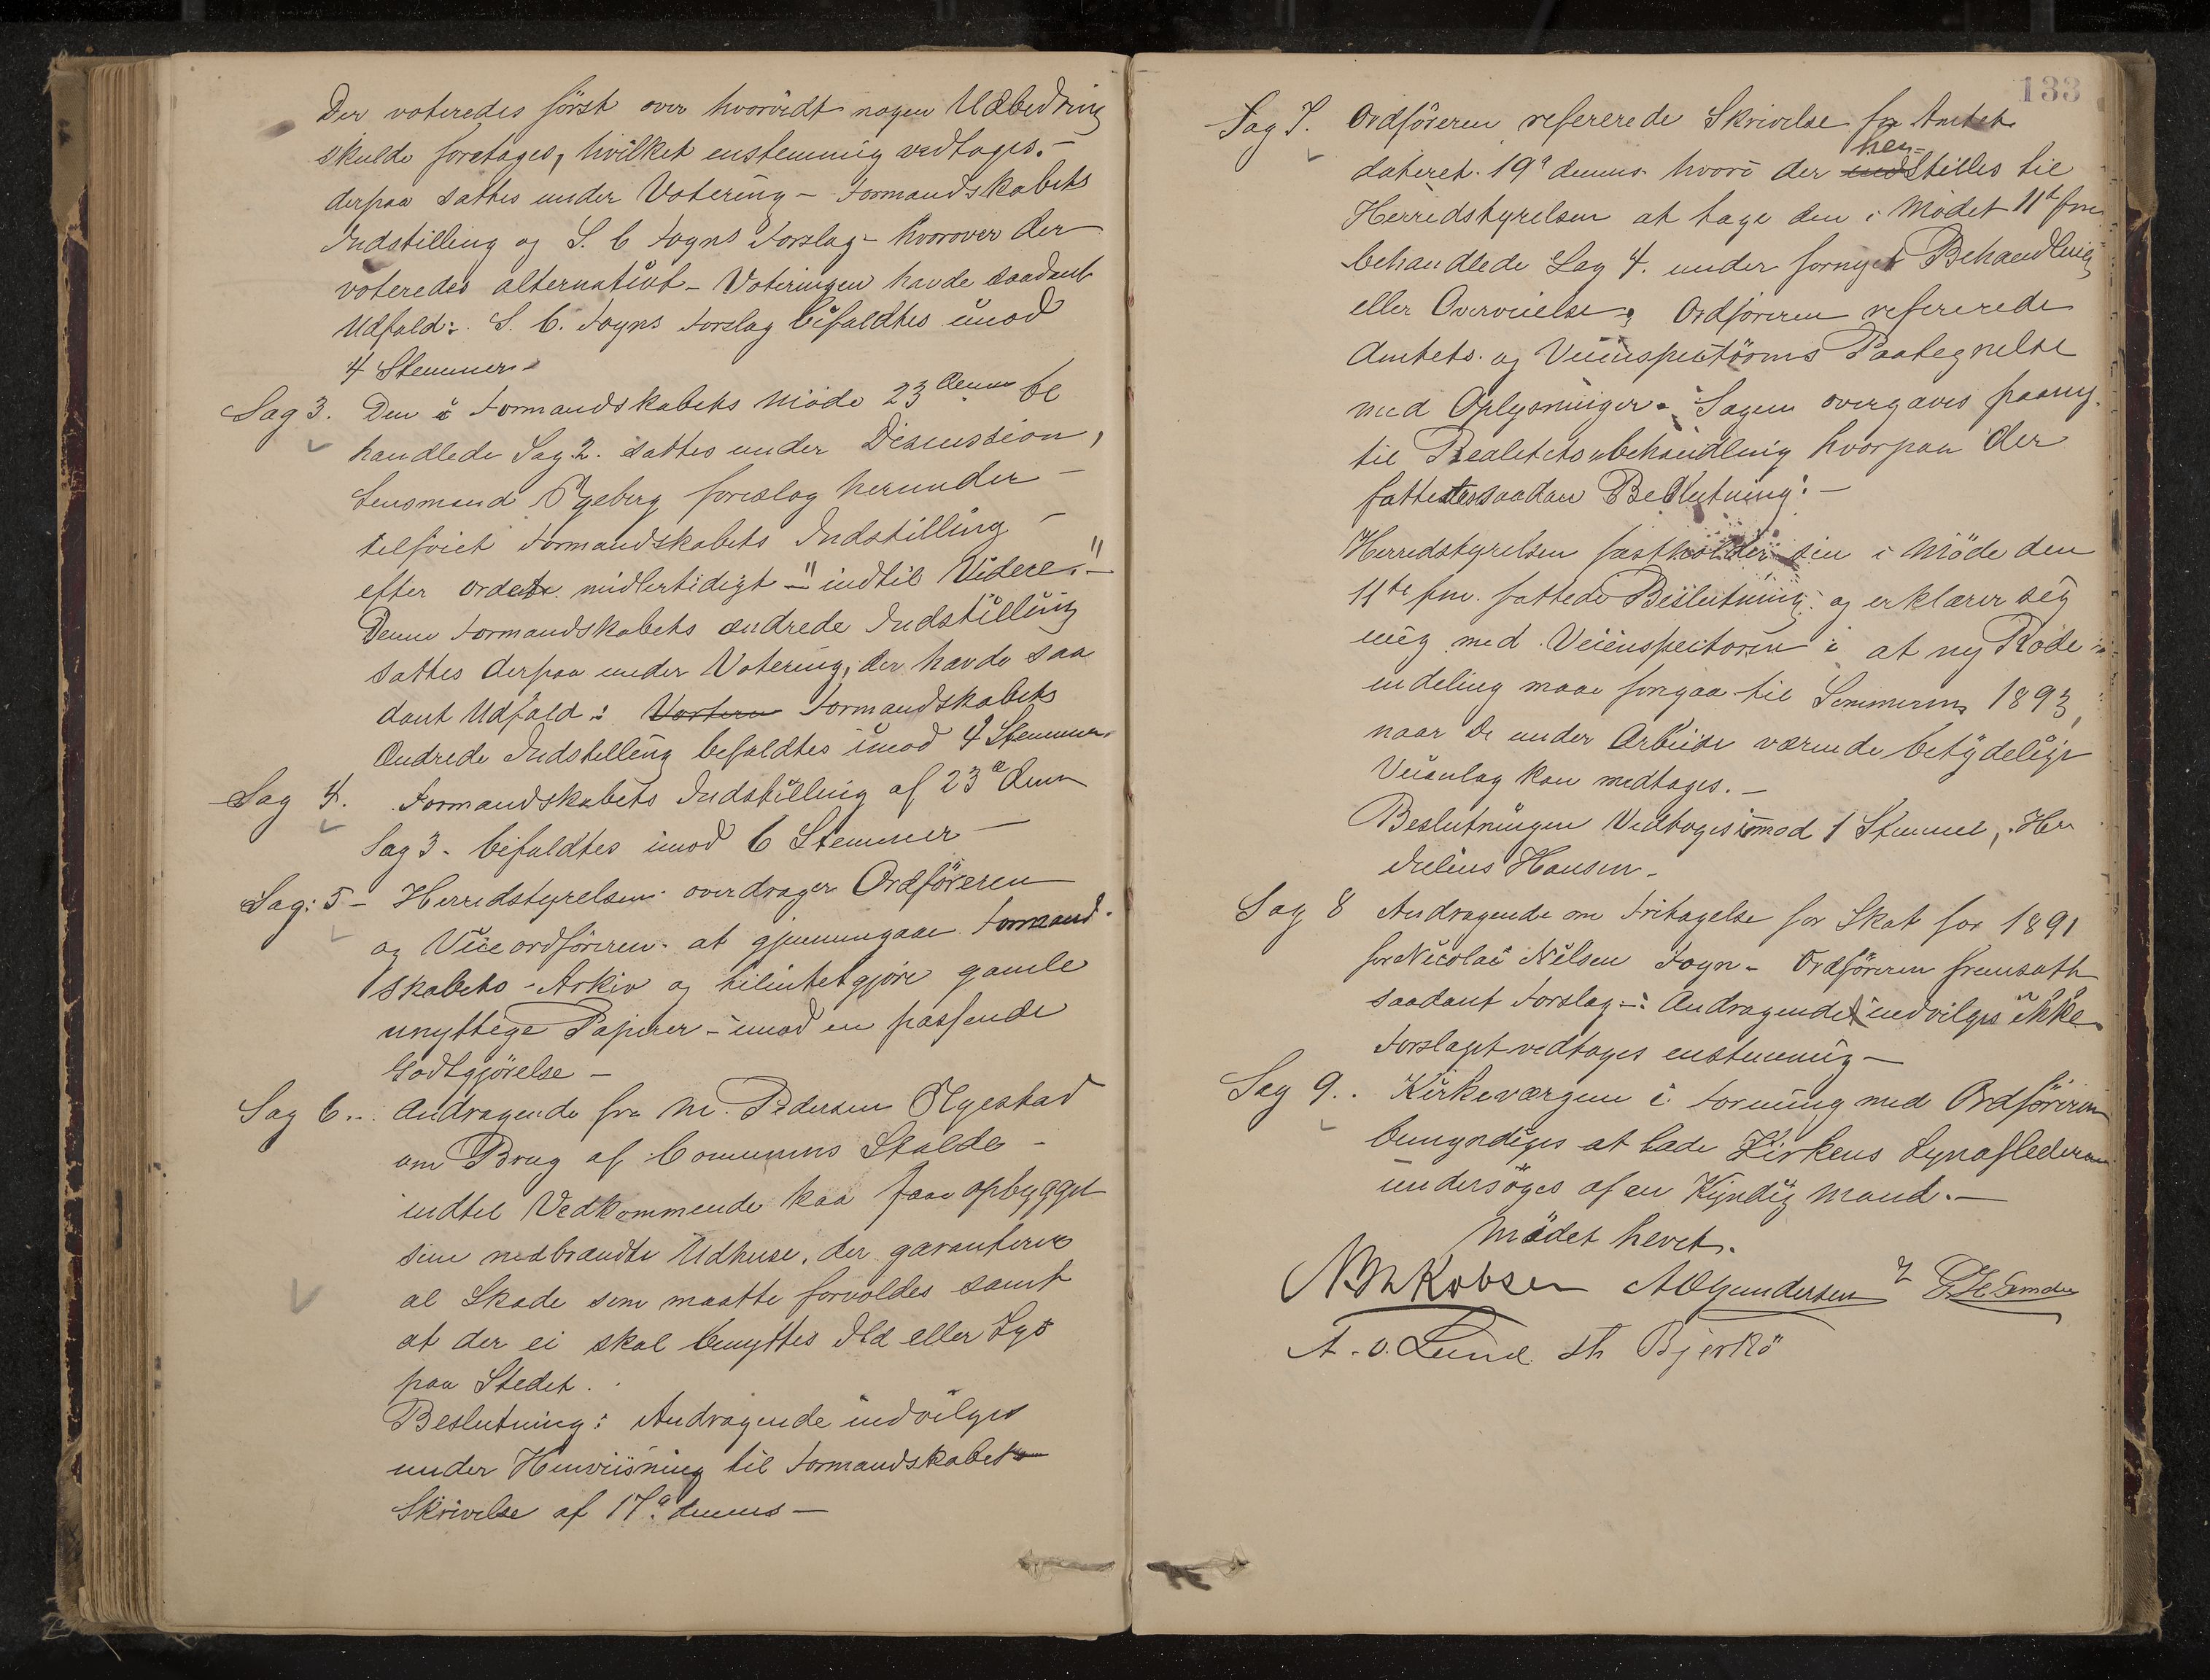 Der voteredes först over hvorvidt nogen Udbedring
skulde foretages, hvilket enstemmig vedtoges.-
derpaa sattes under Votering - Formandskabets
Indstilling og S. C. Foyns Forslag - hvorover der
voteredes alternativt - Voteringen havde saadant
Udfald:. S. C. Foyns Forslag bifaldtes imod
4 Stemmer.-
Sag 3. Den i Formandskabets Möde 23 denne be
handlede Sag 2. sattes under Discussion,
Lensmand Ygeberg foreslog herunder -
tilföiet Formandskabets Indstilling -
efter ordet midlertidigt - "indtil Videre".-
Denne Formandskabets ændrede Indstilling
sattes derpaa under Votering, der havde saa
dant Udfald: Formandskabets
Ændrede Indstilling befaldtes imod 4 Stemmer.
Sag 4. Formandskabets Indstilling af 23d denne
Sag 3. bifaldtes imod 6 Stemmer -
Sag: 5 - Herredstyrelsen overdrager Ordföreren
og Viceordföreren at gjennemgaae Formand-
skabets - Arkiv og tilintetgjöre gamle
unyttege Papirer - imod en passende
Godtgjörelse -
Sag 6... Andragende fra M. Pedersen Olgestad
om Brug af Comunens Stalde -
indtil Vedkommende kaa faae opbygget
sine nedbrændte Udhuse, der garanteres
al Skade som maatte forvoldes samt
at der ei skal benyttes Ild eller Lys
paa Stedet.
Beslutning: Andragende indvilges
under Henviisning til Formandskabets
Skrivelse af 17d. dennes -
133
Sag 7. Ordföreren refererede Skrivelse fra Amtet
hen-
dateret. 19d dennes. hvori der indstilles til
Herredstyrelsen at tage den i Mödet 11te fm.
behandlede Sag 4. under fornyet Behandling
eller Overveielse, Ordföreren refererede
Amtets. og Veiinspectörens Paategnelse
med Oplysninger. Sagen overgaves paany.
til Realitetsbehandling hvorpaa der
fattedes saadan Beslutning: -
Herredstyrelsen fastholder sin i Möde den
11te fm. fattede Beslutning. og erklærer sig
enig med Veiinspectoren i at ny Rode
indeling maae forgaa til Sommeren 1893,
naar de under Arbeide værende betydelige
Veianlæg kan medtages. -
Beslutningen Vedtoges imod 1 Stemme, Her
Julius Hansen.
Sag 8 Andragende om Fritagelse for Skat for 1891
for Nicolai Nilsen Foyn - Ordföreren fremsatte
saadant Forslag -: Andragendet indvilges ikke
Forslaget vedtoges enstemmig -
Sag 9.. Kirkeværgen i Forening med Ordföreren
bemyndiges at lade Kirkens Lynafledere
undersöges af en Kyndig Mand. -
Mödet hevet.
A Gundersen
A. O. Lund. Th Bjerkö